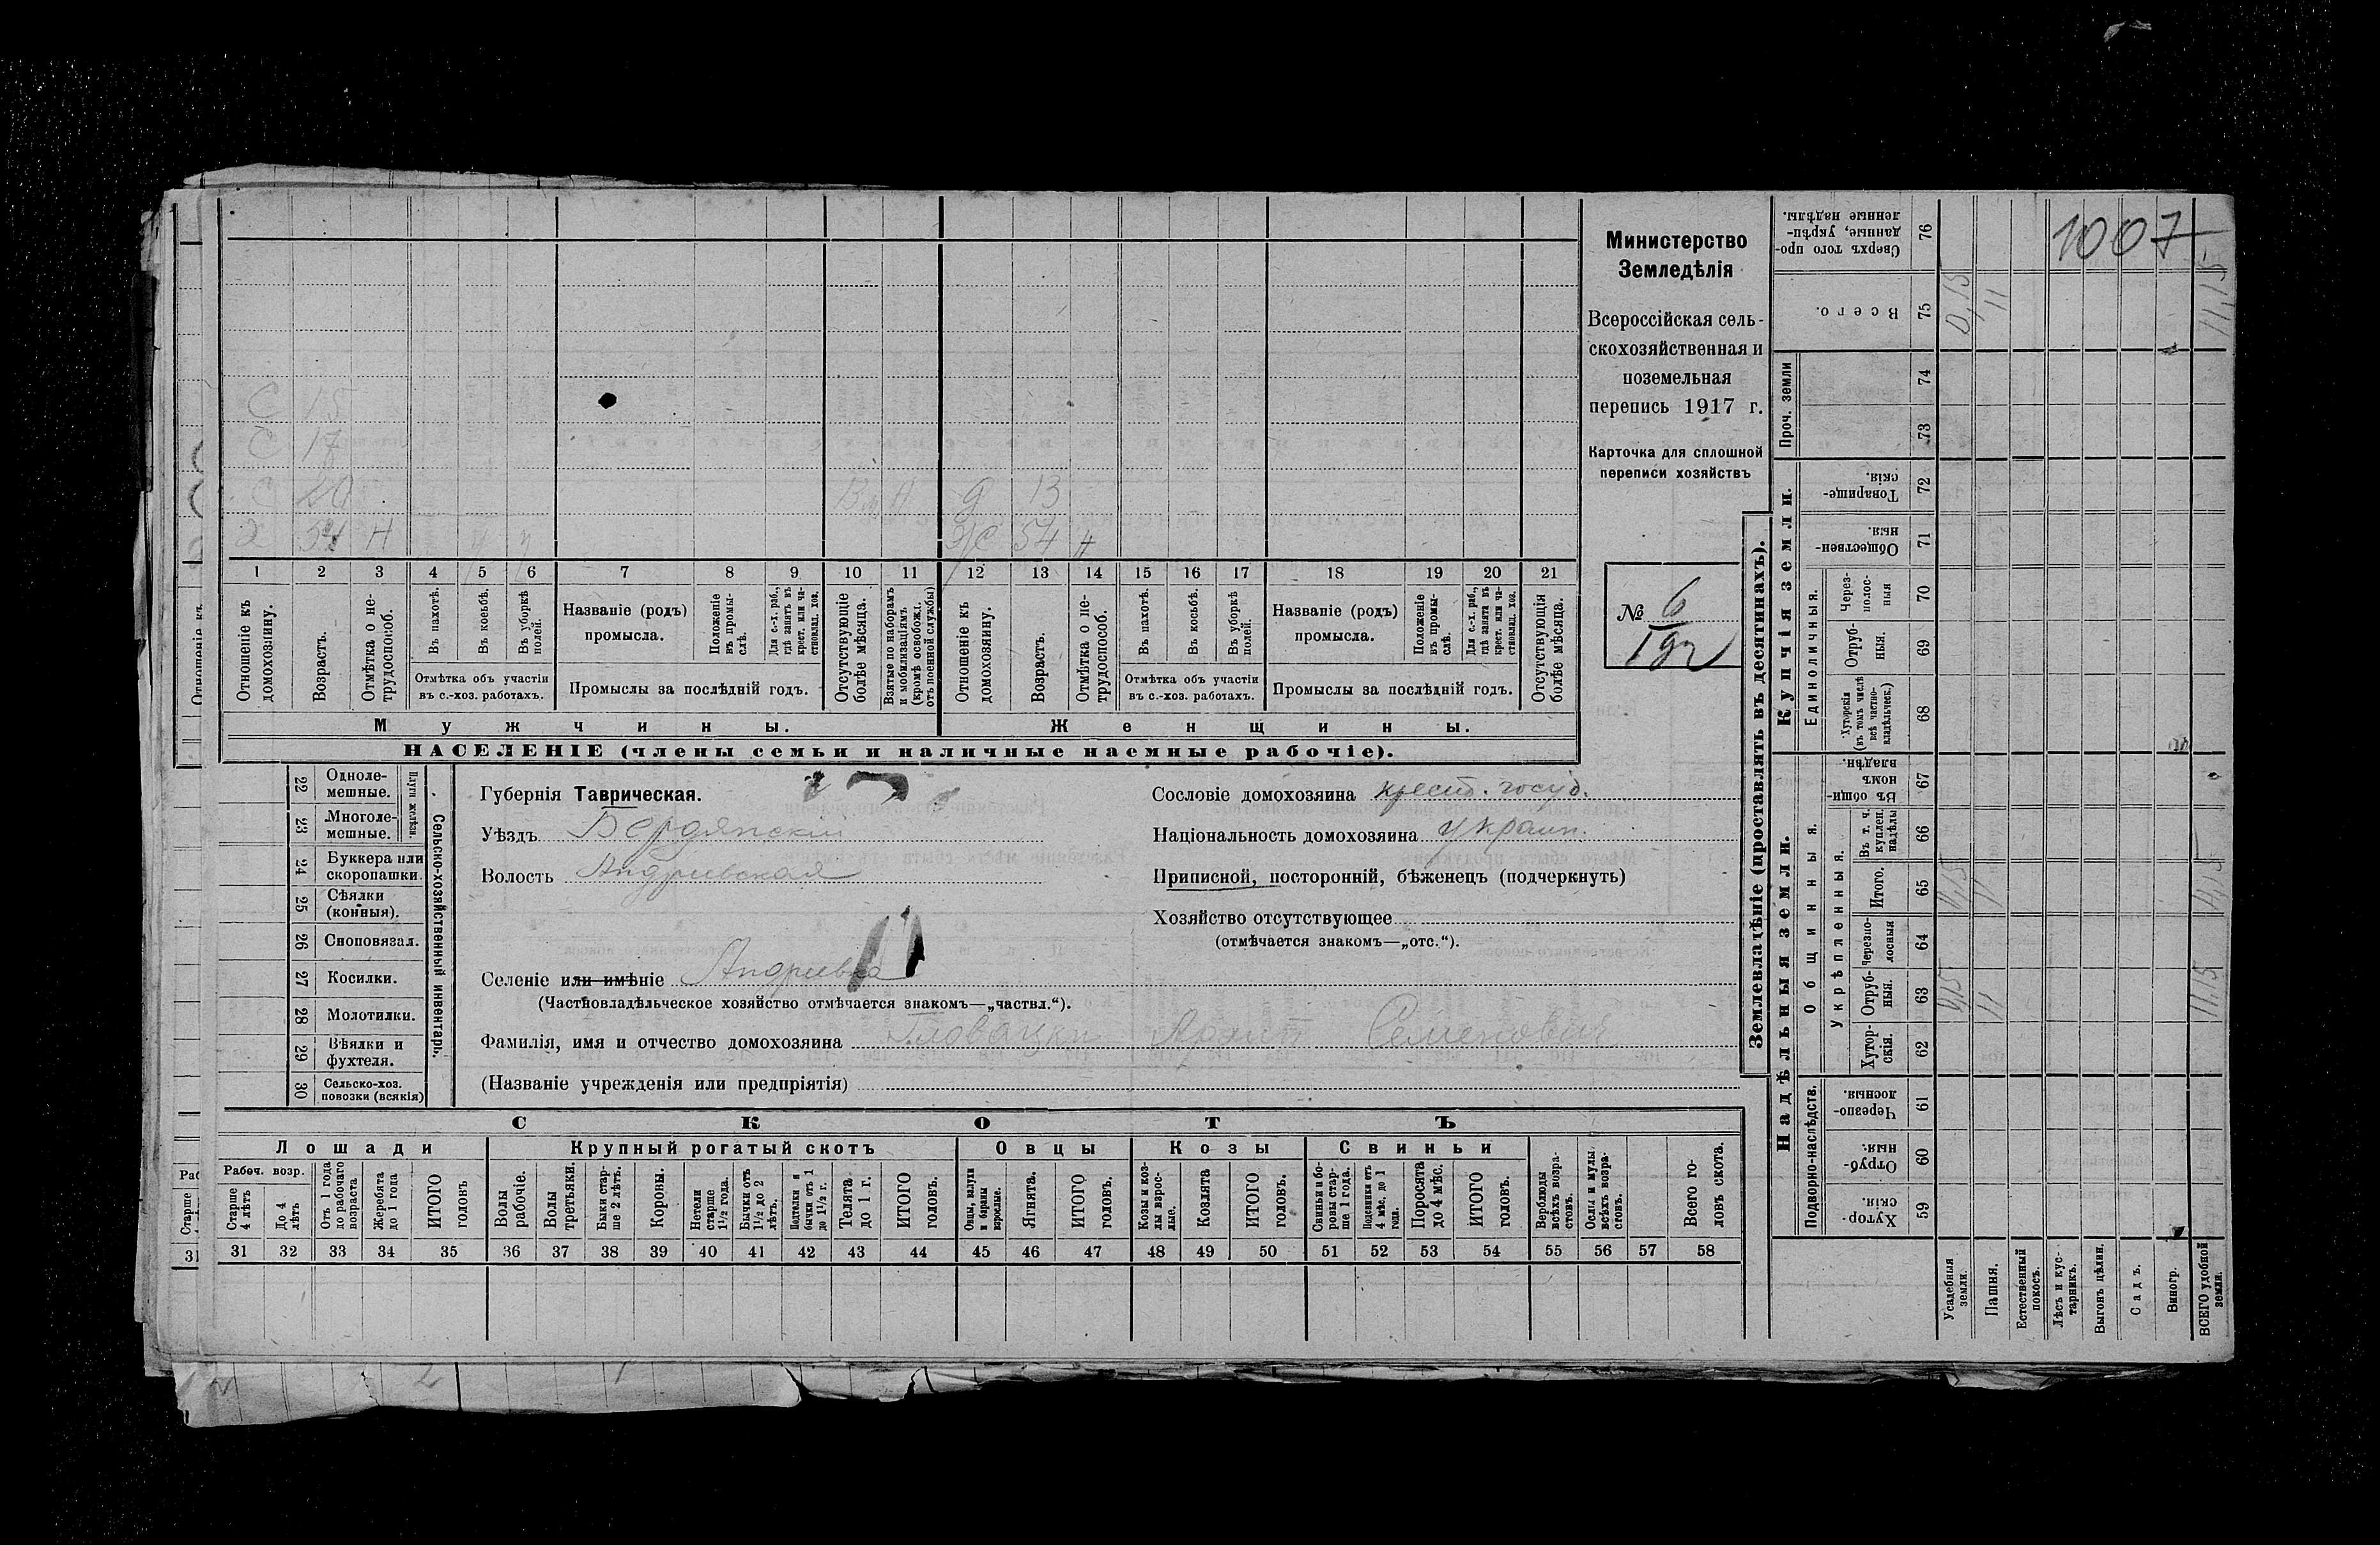 1007
Министерство
Земледѣлія
Всероссійская сель-
скохозяйственная и
поземельная
перепись 1917 г.
Карточка для сплошной
переписи хозяйствъ
№ 6
С 15
С 17
С 20 Д 13
Х 54 Н Ж 54 Н
1 2 3 4 5 6 7 8 9 10 11 12 13 14 15 16 17 18 19 20 21
Отношеніе къ домохозяину.
Возрастъ.
Отмѣтка о не-трудоспособ.
Въ пахотѣ.
Въ косьбѣ.
Въ уборкѣ полей.
Отмѣтка объ участіи въ с.-хоз. работахъ.
Названіе (родъ) промысла.
Положеніе въ промы-слѣ.
Для с.-х. раб., гдѣ занятъ въ крест. или ча-стновлад. хоз.
Промыслы за послѣдній годъ.
Отсутствующіе болѣе мѣсяца.
Взятые по наборамъ и мобилизаціямъ (кромѣ освобожд. отъ военной службы)
Отношеніе къ домохозяину.
Возрастъ.
Отмѣтка о не-трудоспособ.
Въ пахотѣ.
Въ косьбѣ.
Въ уборкѣ полей.
Отмѣтка объ участіи въ с.-хоз. работахъ.
Названіе (родъ) промысла.
Положеніе въ промы-слѣ.
Для с.-х. раб., гдѣ занята въ крест. или ча-стновлад. хоз.
Промыслы за послѣдній годъ.
Отсутствующія болѣе мѣсяца.
Мужчины. Женщины.
НАСЕЛЕНІЕ (члены семьи и наличные наемные рабочіе).
22 Одноле-мешные.
23 Многоле-мешные.
Плуги желѣзн.
24 Буккера или скоропашки.
25 Сѣялки (конныя).
26 Сноповязал.
27 Косилки.
28 Молотилки.
29 Вѣялки и фухтеля.
30 Сельско-хоз. повозки (всякія)
Сельско-хозяйственный инвентарь.
Губернія Таврическая.
Уѣздъ Бердянскій
Волость Андріевская
Селеніе или имѣніе Андріевка
(Частновладѣльческое хозяйство отмѣчается знакомъ—„частвл.“).
Фамилія, имя и отчество домохозяина Семеновичъ
(Названіе учрежденія или предпріятія)
Сословіе домохозяина крест. госуд.
Національность домохозяина украин.
Приписной, посторонній, бѣженецъ (подчеркнуть)
Хозяйство отсутствующее
(отмѣчается знакомъ—„отс.“).
СКОТЪ
Лошади Крупный рогатый скотъ Овцы Козы Свиньи
Рабоч. возр.
Старше 4 лѣтъ
До 4 лѣтъ
Отъ 1 года до рабочаго возраста
Жеребята до 1 года
ИТОГО головъ
Волы рабочіе.
Волы третьяки.
Быки стар-ше 2 лѣтъ.
Коровы.
Нетели старше 1½ года.
Бычки отъ 1½ до 2 лѣтъ.
Нетелки и бычки отъ 1 до 1½ г.
Телята до 1 г.
ИТОГО головъ.
Овцы, валухи и бараны взрослые.
Ягнята.
ИТОГО головъ.
Козы и коз-лы взрос-лые.
Козлята
ИТОГО головъ.
Свиньи и бо-ровы стар-ше 1 года.
Подсвинки отъ 4 мѣс. до 1 года.
Поросята до 4 мѣс.
ИТОГО головъ.
Верблюды всѣхъ возра-стовъ.
Ослы и мулы всѣхъ возра-стовъ.
Всего го-ловъ скота.
31 32 33 34 35 36 37 38 39 40 41 42 43 44 45 46 47 48 49 50 51 52 53 54 55 56 57 58
Землевладѣніе (проставлять въ десятинахъ).
Надѣльныя земли. Купчія земли. Проч. земли
Подворно-наслѣдств.
Общинныя.
Укрѣпленныя.
Единоличныя.
Хутор-скія. 59
Отруб-ныя. 60
Черезпо-лосныя. 61
Хутор-скія. 62
Отруб-ныя. 63
Черезпо-лосныя 64
Итого. 65
Въ т. ч. куплен. надѣлы 66
Въ общи-номъ владѣн. 67
Хуторскія (въ томъ числѣ всѣ частно-владѣльческ.) 68
Отруб-ныя. 69
Через-полос-ныя 70
Обществен-ныя. 71
Товарище-скія. 72
73
74
Всего. 75
Сверхъ того про-данные, укрѣп-ленные надѣлы. 76
Усадебныя земли. 0,15
Пашня. 11 11 11
Естественный покосъ.
Лѣсъ и кус-тарникъ.
Выгонъ цѣлин.
Садъ.
Виногр.
ВСЕГО удобной земли. 11,15 11,15 11,15